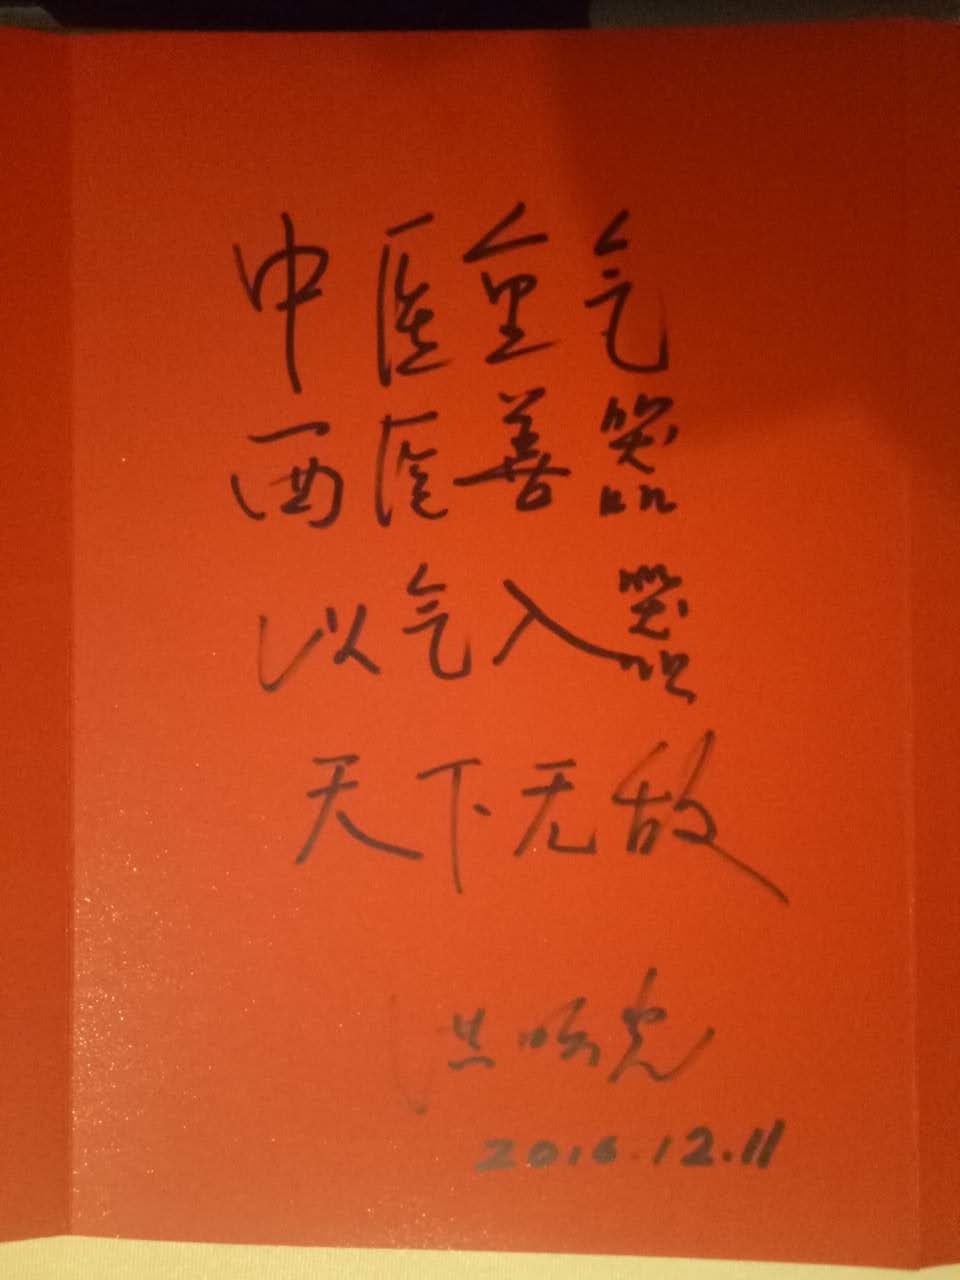 中医重气
西医善器
以气入器
天下无敌
洪
2016.12.11